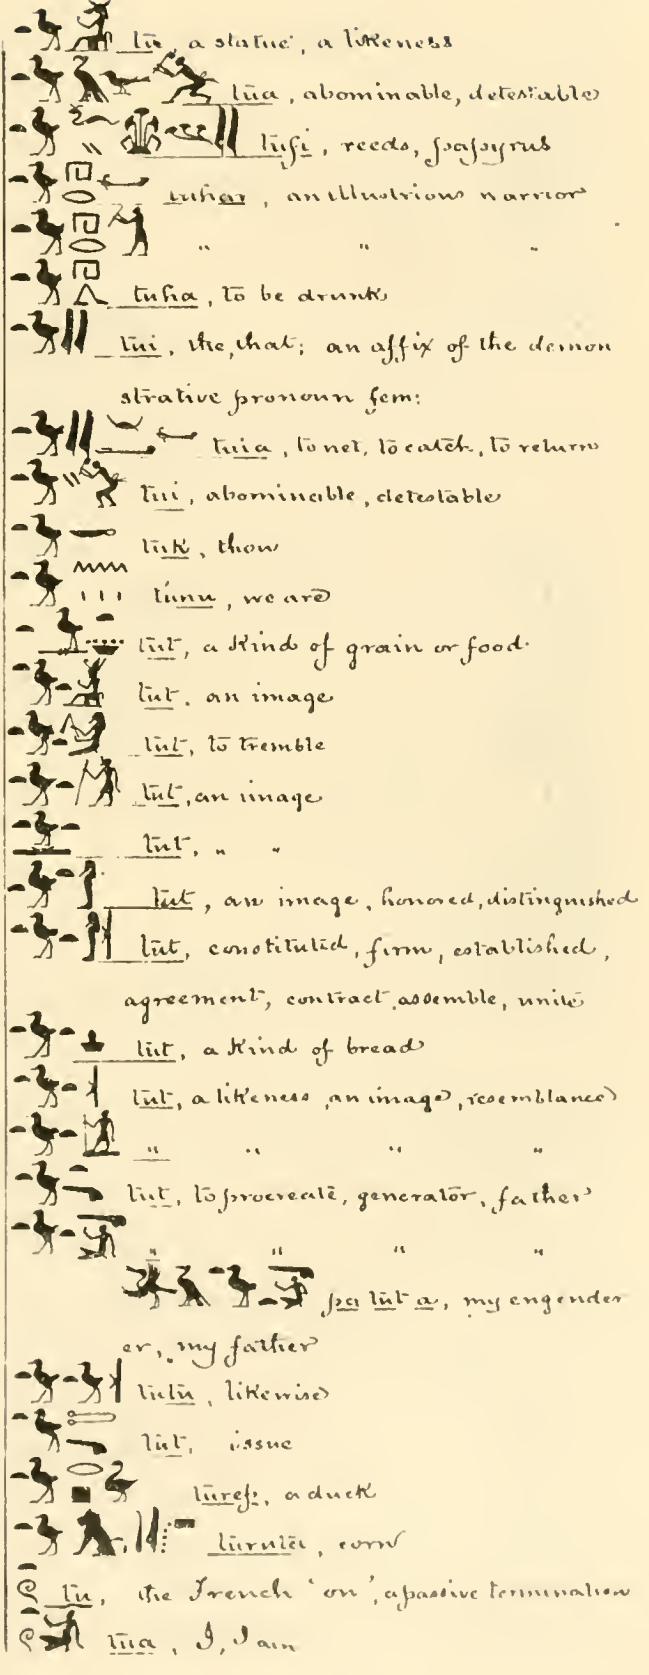 tu, a statue, a likeness
tua, abominable, detestable
tufi, reeds, papyrus
tuhar, an illustrious warrior
" " "
tuha, to be drunk
tui, the, that; an affix of the demon
strative pronoun fem:
tuia, to net, to catch, to return
tui, abominable, detestable
tuk, thou
tunu, we are
tut, a kind of grain or food
tut, an image
tut, to tremble
tut, an image
tut, " "
tut, an image, honored, distinguished
tut, constituted, firm, established,
agreement, contract, assemble, unite
tut, a kind of bread
tut, a likeness, an image, resemblance
" " " "
tut, to procreate, generator, father
" " " "
pa tut a, my engender
er, my father
tutu, likewise
tut, issue
turep, a duck
corn
tu, the French 'on', a passive termination
tua, I, I am